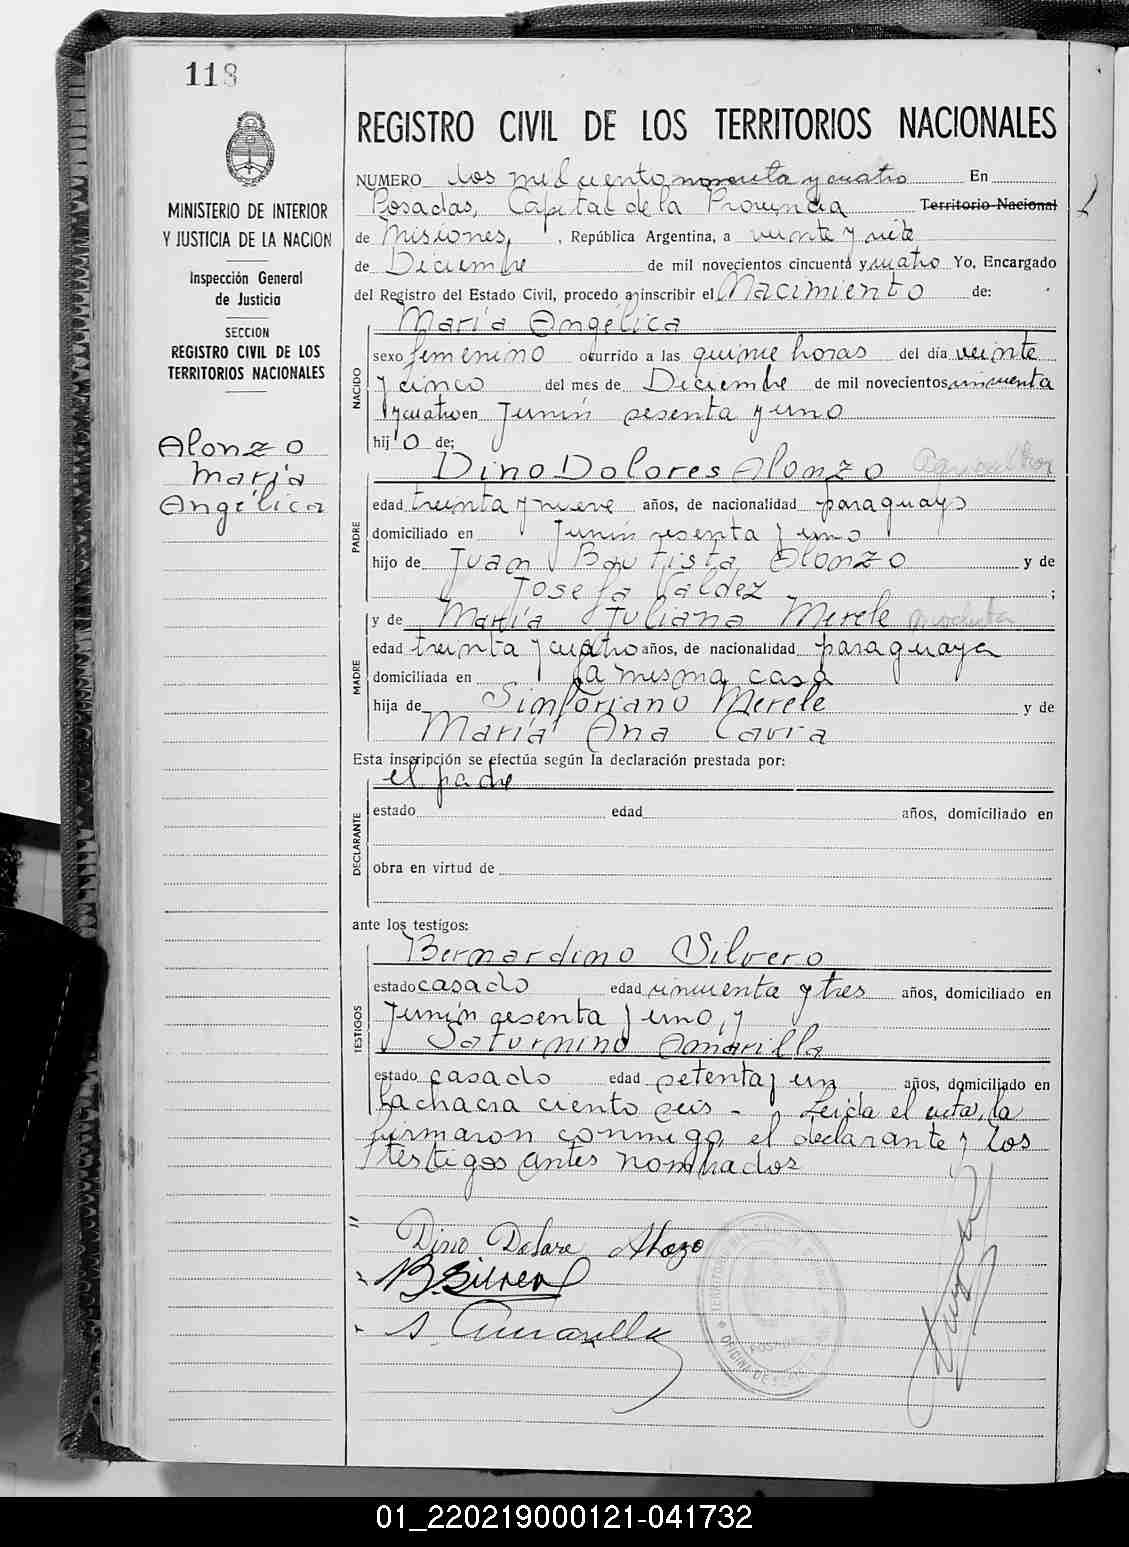 118
MINISTERIO DE INTERIOR
Y JUSTICIA DE LA NACION
Inspección General
de Justicia
SECCION
REGISTRO CIVIL DE LOS
TERRITORIOS NACIONALES
Alonzo
María
Angélica
REGISTRO CIVIL DE LOS TERRITORIOS NACIONALES
NUMERO dos mil ciento noventa y cuatro En
Posadas, Capital de la Provincia Territorio Nacional
de Misiones, , República Argentina, a veinte y siete
de Diciembre de mil novecientos cincuenta y cuatro Yo, Encargado
del Registro del Estado Civil, procedo a inscribir el Nacimiento de:
NACIDO
María Angélica
sexo femenino ocurrido a las quince horas del día veinte
y cinco del mes de Diciembre de mil novecientos cincuenta
y cuatro en Junín sesenta y uno
hijo de:
PADRE
Dino Dolores Alonzo Agricultor
edad treinta y nueve años, de nacionalidad paraguayo
domiciliado en Junín sesenta y uno
hijo de Juan Bautista Alonzo y de
Josefa Valdez ;
MADRE
y de María Juliana Merele
edad treinta y cuatro años, de nacionalidad paraguaya
domiciliada en la misma casa
hija de Sinforiano Merele y de
María Ana
Esta inscripción se efectúa según la declaración prestada por:
DECLARANTE
el padre
estado edad años, domiciliado en
obra en virtud de
ante los testigos:
TESTIGOS
Bernardino Silvero
estado casado edad cincuenta y tres años, domiciliado en
Junín sesenta y uno, y
Saturnino Amarilla
estado casado edad setenta y un años, domiciliado en
la chacra ciento seis - Leida el acta, la
firmaron conmigo, el declarante y los
testigos antes nombrados
Dino Dolore Alozo
B. Silvero
S. Amarilla
01_220219000121-041732